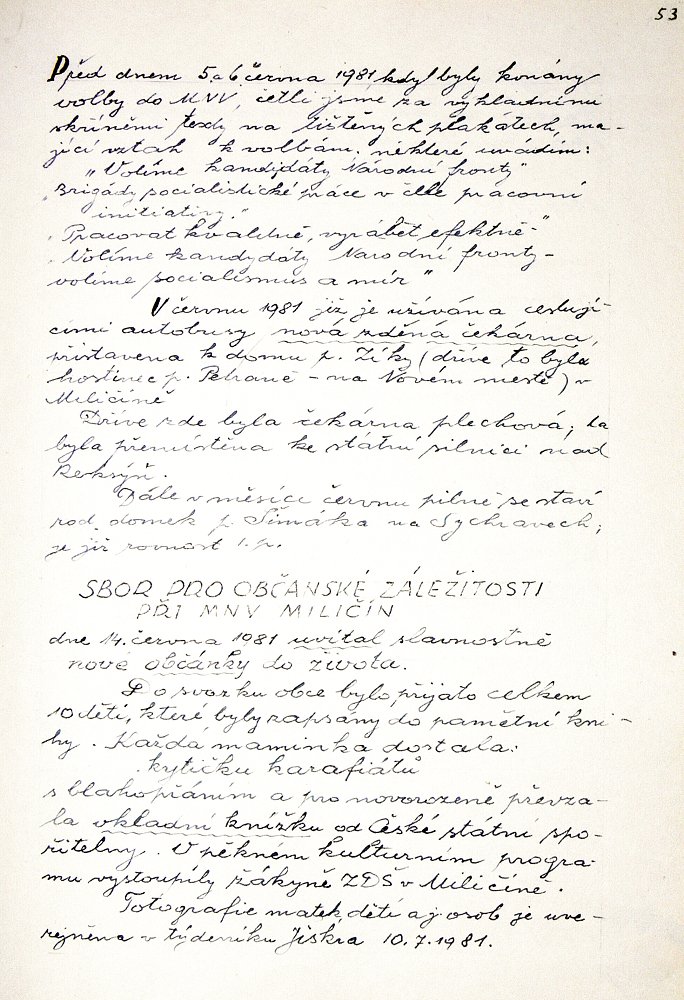 53
Před dnem 5. a 6. června 1981, kdy byly konány
volby do MNV, četli jsme za výkladními
skříněmi texty na tištěných plakátech, ma-
jící vztah k volbám. některé uvádím:
"Volíme kandidáty Národní fronty"
"Brigády socialistické práce v čele pracovní
iniciativy."
"Pracovat kvalitně, vyrábět efektně"
"Volíme kandydáty Národní fronty -
volíme socialismus a mír"
V červnu 1981 již je užívána cestují-
cími autobusy nová zděná čekárna,
přistavena k domu p. Ziky (dříve to byla
hostinec p. - na Novém městě) v
Miličíně
Dříve zde byla čekárna plechová; ta
byla přemístěna ke státní silnici nad

Dále v měsíci červnu pilně se staví
rod. domek p. Šimáka na Sychravech;
je již rovnost 1. p.
SBOR PRO OBČANSKÉ ZÁLEŽITOSTI
PŘI MNV MILIČÍN
dne 14. června 1981 uvítal slavnostně
nové občánky do života.
Do svazku obce bylo přijato celkem
10 dětí, které byly zapsány do pamětní kni-
hy. Každá maminka dostala:
kytičku karafiátů
s blahopřáním a pro novorozeně převza-
la vkladní knížku od České státní spo-
řitelny. V pěkném kulturním progra-
mu vystoupily žákyně ZDŠ v Miličíně.
Fotografie matek, dětí a j. osob je uve-
rejněna v týdeníku Jiskra 10.7.1981.